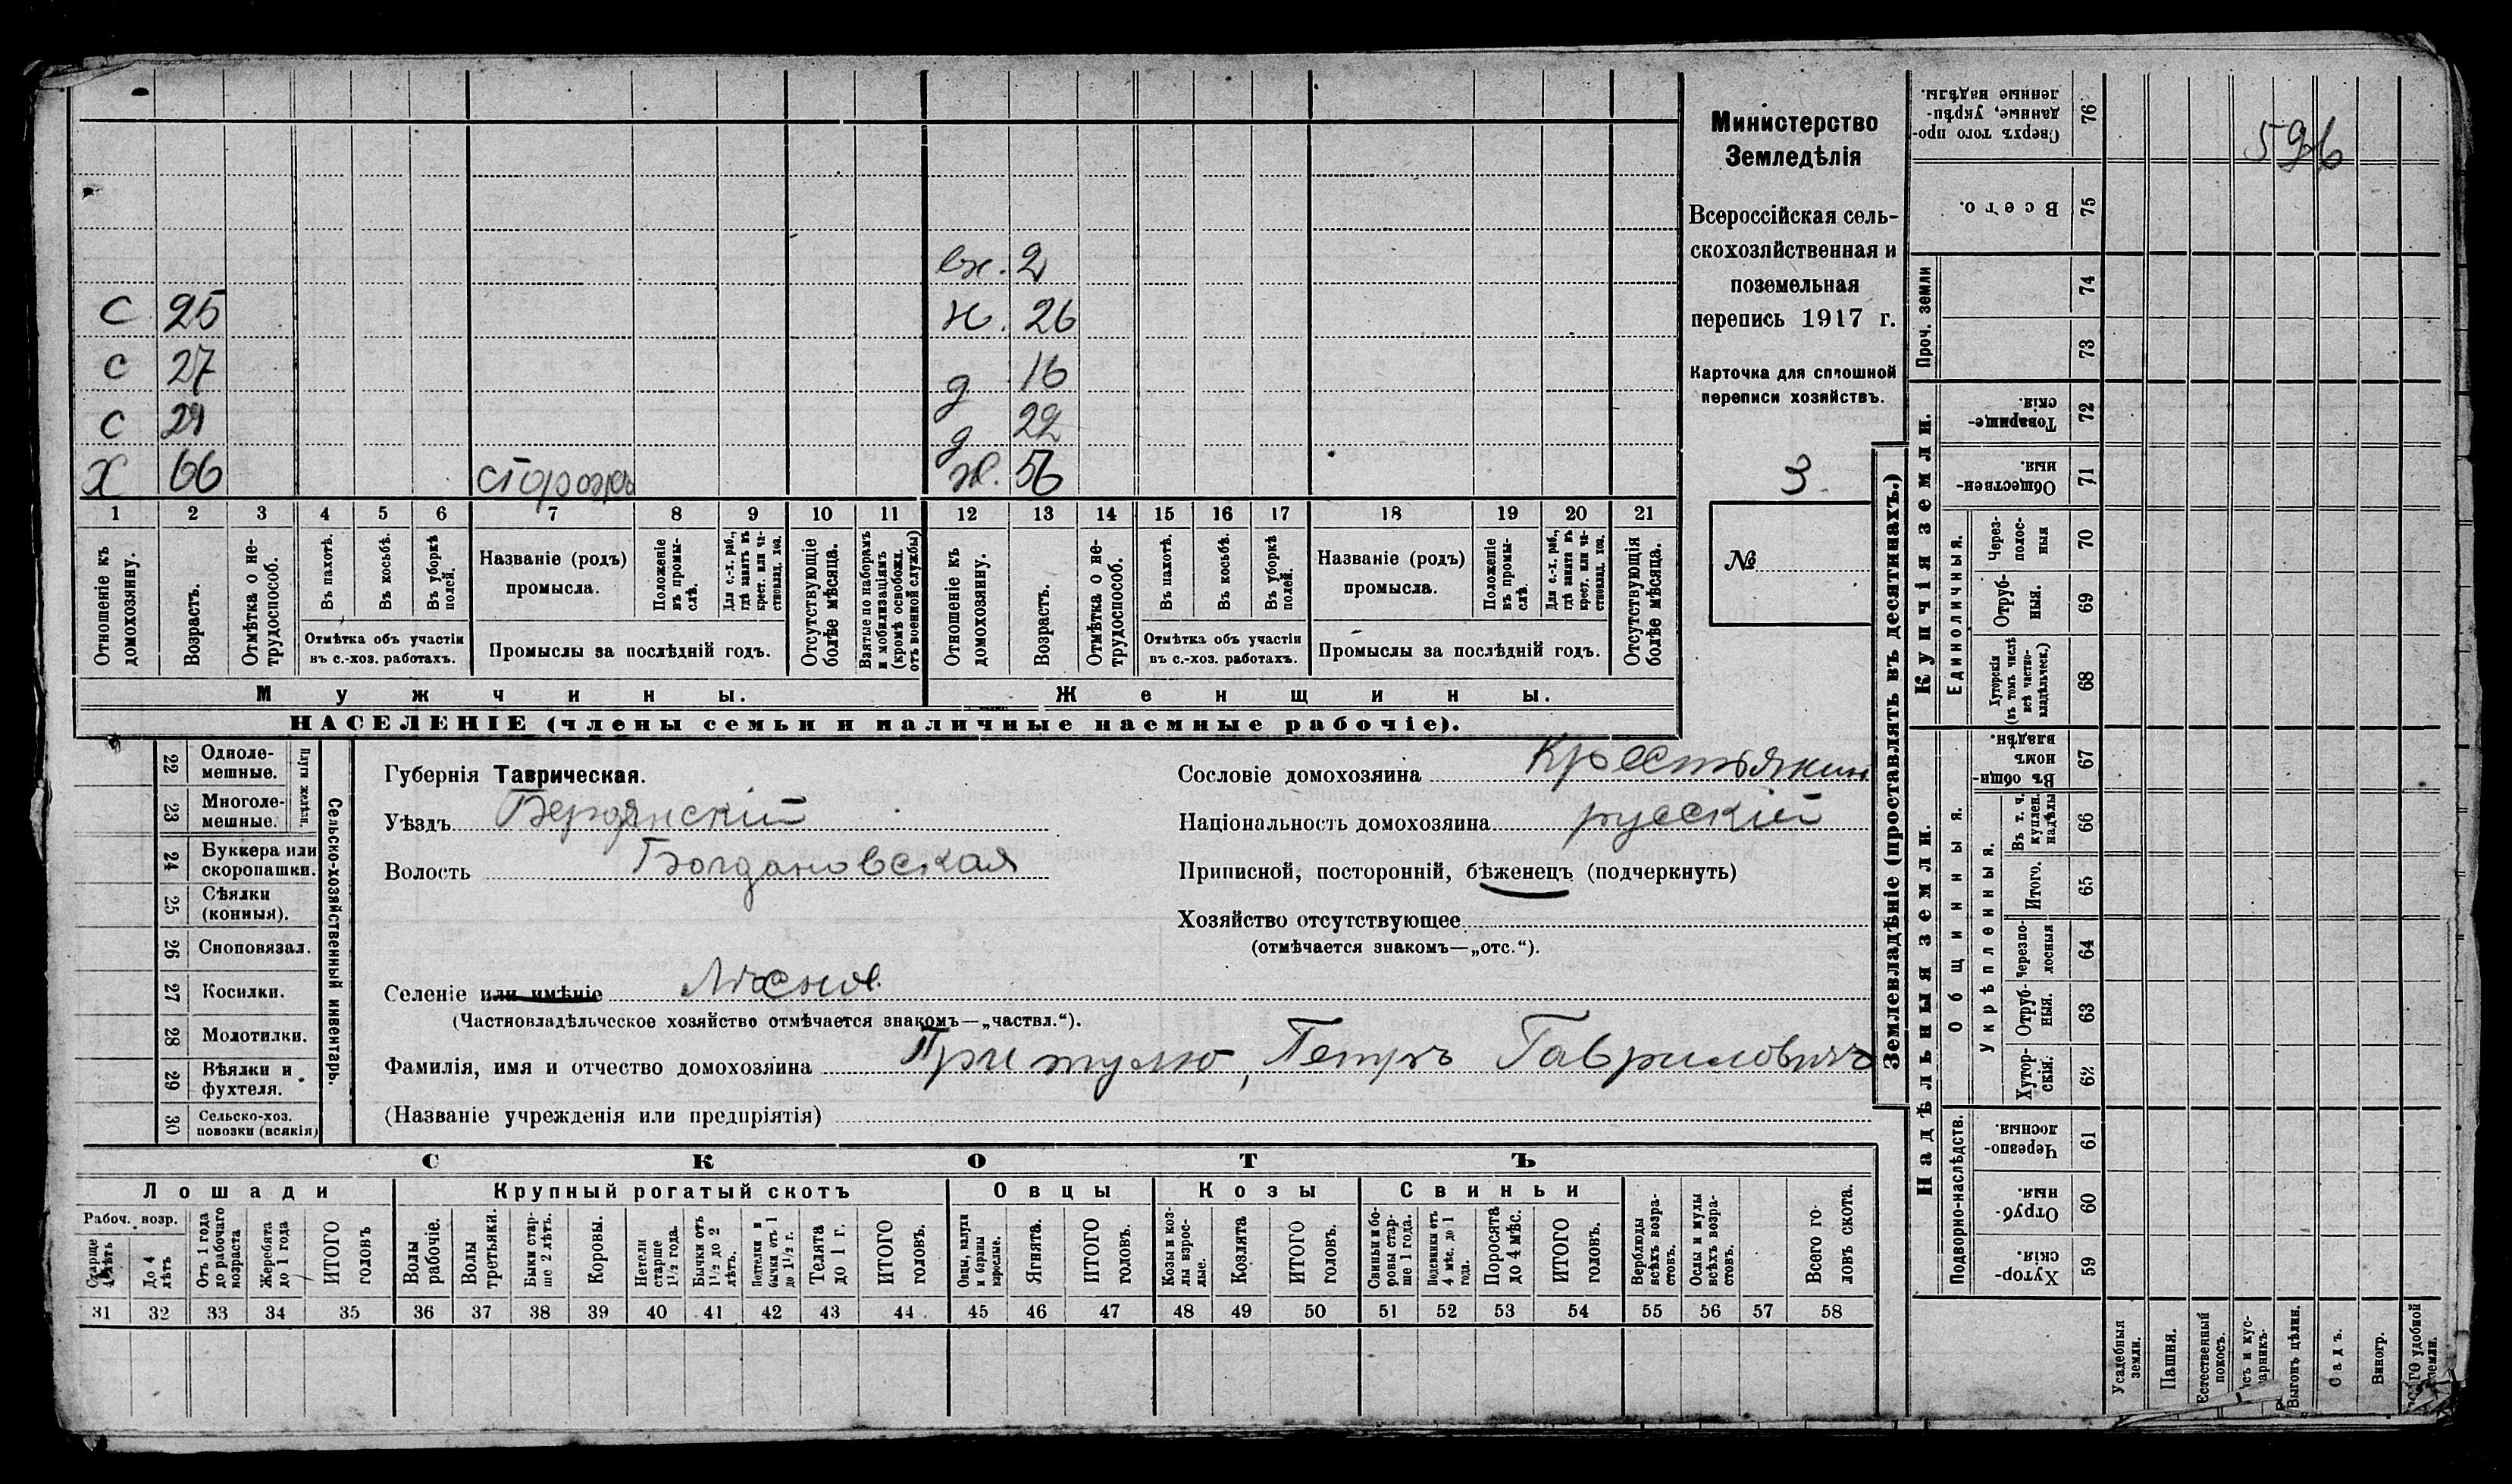 Министерство
Земледѣлія
Всероссійская сель-
скохозяйственная и
поземельная
перепись 1917 г.
Карточка для сплошной
переписи хозяйствъ.
3
№
596
2
С 25 26
С 27 д 16
С д 22
Х 66 сторожъ ж. 56
1 2 3 4 5 6 7 8 9 10 11 12 13 14 15 16 17 18 19 20 21
Отношеніе къ домохозяину.
Возрастъ.
Отмѣтка о не-трудоспособ.
Въ пахотѣ.
Въ косьбѣ.
Въ уборкѣ полей.
Отмѣтка объ участіи
въ с.-хоз. работахъ.
Названіе (родъ)
промысла.
Положеніе въ промы-слѣ.
Для с.-х. раб., гдѣ занятъ въ крест. или ча-стновлад. хоз.
Промыслы за послѣдній годъ.
Отсутствующіе болѣе мѣсяца.
Взятые по наборамъ и мобилизаціямъ (кромѣ освобожд. отъ военной службы)
Отношеніе къ домохозяину.
Возрастъ.
Отмѣтка о не-трудоспособ.
Въ пахотѣ.
Въ косьбѣ.
Въ уборкѣ полей.
Отмѣтка объ участіи
въ с.-хоз. работахъ.
Названіе (родъ)
промысла.
Положеніе въ промы-слѣ.
Для с.-х. раб., гдѣ занята въ крест. или ча-стновлад. хоз.
Промыслы за послѣдній годъ.
Отсутствующія болѣе мѣсяца.
Мужчины. Женщины.
НАСЕЛЕНІЕ (члены семьи и наличные наемные рабочіе).
22 Одноле-мешные.
23 Многоле-мешные.
Плуги желѣзн.
24 Буккера или скоропашки.
25 Сѣялки (конныя).
26 Сноповязал.
27 Косилки.
28 Молотилки.
29 Вѣялки и фухтеля.
30 Сельско-хоз. повозки (всякія)
Сельско-хозяйственный инвентарь.
Губернія Таврическая.
Уѣздъ Бердянскій
Волость Богдановская
Сословіе домохозяина Крестьянин
Національность домохозяина русскій
Приписной, посторонній, бѣженецъ (подчеркнуть)
Хозяйство отсутствующее
(отмѣчается знакомъ—„отс.“).
Селеніе или имѣніе
(Частновладѣльческое хозяйство отмѣчается знакомъ—„частвл.“).
Фамилія, имя и отчество домохозяина Притулю, Петръ Гавриловичъ
(Названіе учрежденія или предпріятія)
СКОТЪ
Лошади Крупный рогатый скотъ Овцы Козы Свиньи
Рабоч. возр.
Старше 4 лѣтъ
До 4 лѣтъ
Отъ 1 года до рабочаго возраста
Жеребята до 1 года
ИТОГО головъ
Волы рабочіе.
Волы третьяки.
Быки стар-ше 2 лѣтъ.
Коровы.
Нетели старше 1½ года.
Бычки отъ 1½ до 2 лѣтъ.
Подтелки и бычки отъ 1 до 1½ г.
Телята до 1 г.
ИТОГО головъ.
Овцы, валухи и бараны взрослые.
Ягнята.
ИТОГО головъ.
Козы и коз-лы взрос-лые.
Козлята
ИТОГО головъ.
Свиньи и бо-ровы стар-ше 1 года.
Подсвинки отъ 4 мѣс. до 1 года.
Поросята до 4 мѣс.
ИТОГО головъ.
Верблюды всѣхъ возра-стовъ.
Ослы и мулы всѣхъ возра-стовъ.
Всего го-ловъ скота.
31 32 33 34 35 36 37 38 39 40 41 42 43 44 45 46 47 48 49 50 51 52 53 54 55 56 57 58
Землевладѣніе (проставлять въ десятинахъ.)
Надѣльныя земли. Купчія земли.
Проч. земли
Подворно-наслѣдств.
Общинныя.
Укрѣпленныя.
Единоличныя.
Сверхъ того про-данные, укрѣп-ленные надѣлы. 76
Всего. 75
74
73
Товарище-скія. 72
Обществен-ныя. 71
Через-полос-ныя 70
Отруб-ныя. 69
Хуторскія (въ томъ числѣ всѣ частно-владѣльческ.) 68
Въ общин-номъ владѣн. 67
Въ т. ч. куплен. надѣлы 66
Итого. 65
Черезпо-лосныя 64
Отруб-ныя. 63
Хутор-скія. 62
Черезпо-лосныя. 61
Отруб-ныя. 60
Хутор-скія. 59
Усадебныя земли.
Пашня.
Естественный покосъ.
Выгонъ цѣлин.
Садъ.
Виногр.
удобной земли.